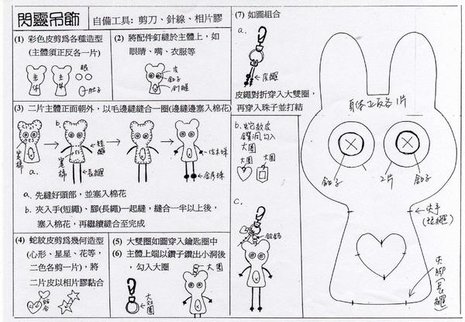 閃靈吊飾
自備工具: 剪刀、針線、相片膠
(1) 彩色皮剪為各種造型
(主體須正反各一片)
眼
(2) 將配件釘縫於主體上，如
眼睛、嘴、衣服等
皮
釦子
(3) 二片主體正面朝外，以毛邊縫縫合一圈(邊縫邊塞入棉花)
塞棉
短繩
長繩
a. 先縫好頭部，並塞入棉花
b. 夾入手(短繩)、腳(長繩)一起縫，縫合一半以上後，
塞入棉花，再繼續縫合至完成
(4) 蛇紋皮剪為幾何造型
(心形、星星、花等，
二色各剪一片)，將
二片皮以相片膠黏合
(5) 大雙圈如圖穿入鑰匙圈中
(6) 主體上端以鑽子鑽出小洞後，
勾入大圈
大圈
大圈
(7) 如圖組合
a.
皮繩
皮繩對折穿入大雙圈，
再穿入珠子並打結
b.
蛇紋皮
鑽洞勾入
大圈
大圈
c.
身体正反各1片
釦子
釦子
夾手
(短繩)
夾腳
(長繩)